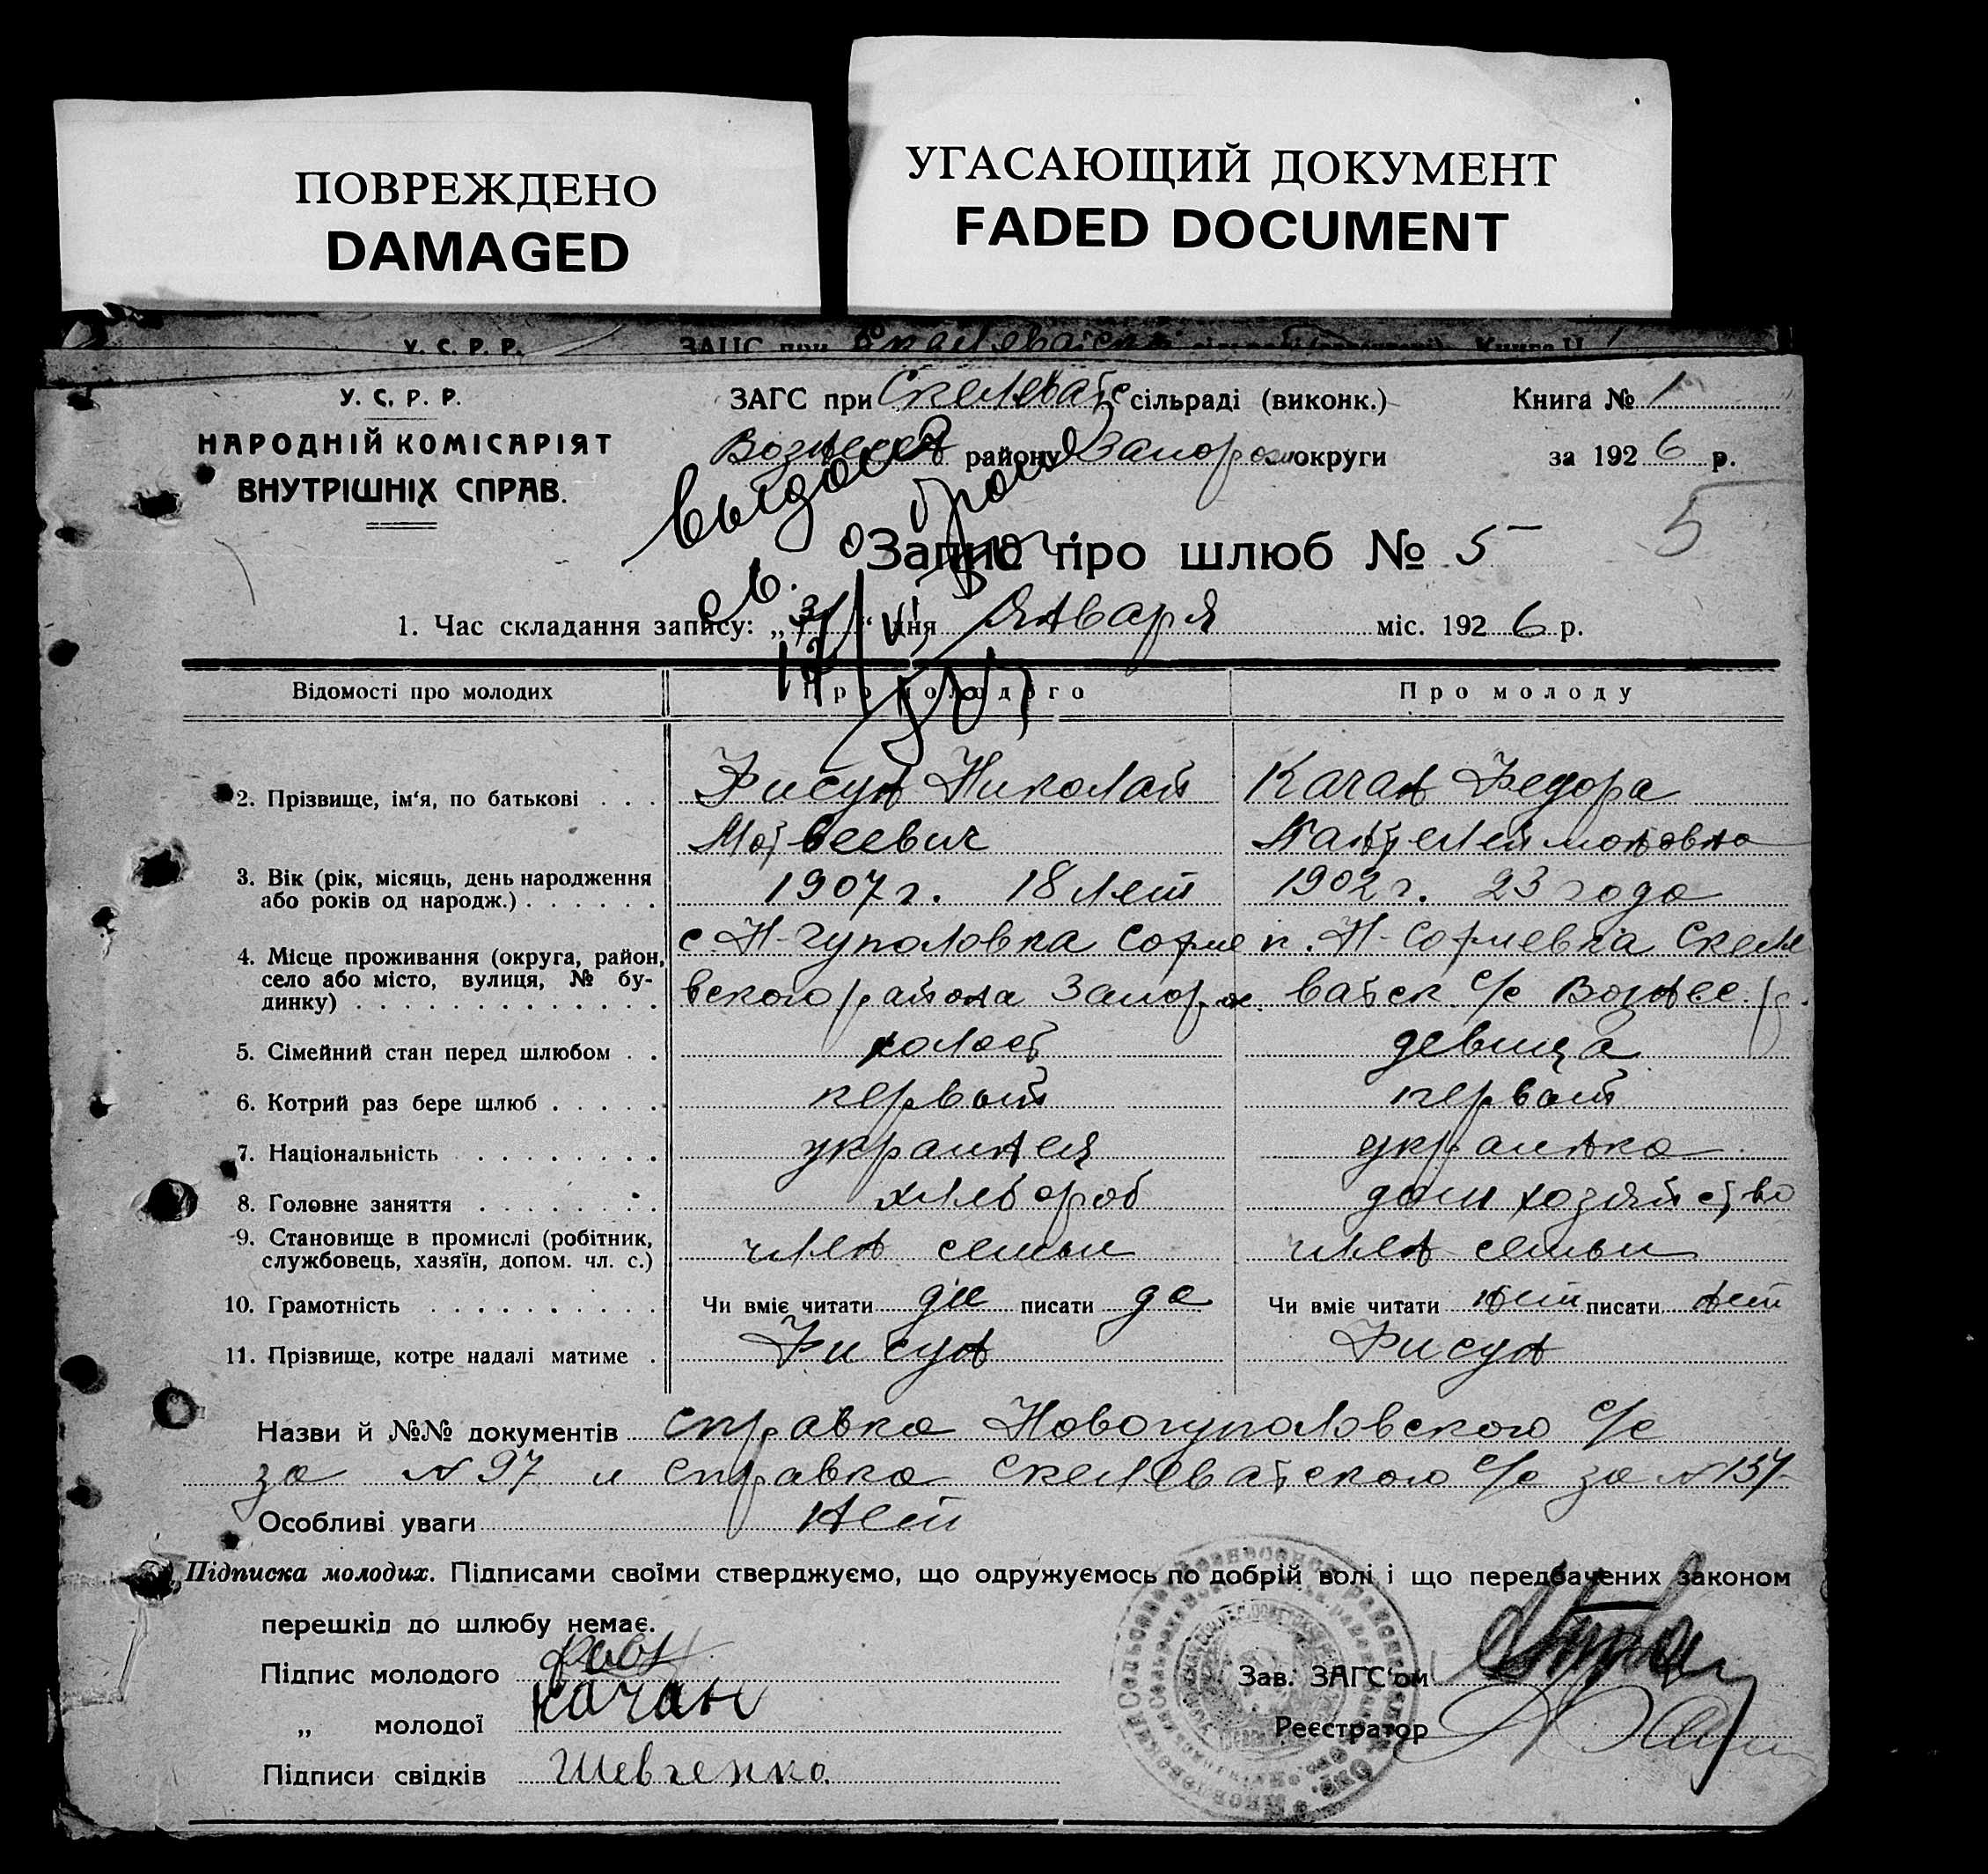 ПОВРЕЖДЕНО
DAMAGED
УГАСАЮЩИЙ ДОКУМЕНТ
FADED DOCUMENT
У. С. Р. Р.
У. С. Р. Р. ЗАГС при Скелевайск сільраді (виконк.) Книга № 1
НАРОДНІЙ КОМІСАРІЯТ
ВНУТРІШНІХ СПРАВ.
Вознесен району Запорож округи за 1926 р.
выдано
св. о браке
Запис про шлюб № 5
5
1. Час складання запису: „ “ дня Января міс. 1926 р.
Відомості про молодих Про молодого Про молоду
2. Прізвище, ім'я, по батькові . . . Фисун Николай Качан Федора
Матвеевич Пантелеймоновна
3. Вік (рік, місяць, день народження або років од народж.) . . . . . . 1907 г. 18 лет 1902 г. 23 года
4. Місце проживання (округа, район, село або місто, вулиця, № будинку) . . . с. Н-гуполовка Софие п. Н-Софиевка Скеле
вского района Запорож. ватск с/с Вознес. р.
5. Сімейний стан перед шлюбом . . холост девица
6. Котрий раз бере шлюб . . . . . первый первый
7. Національність . . . . . . . украинец украинка
8. Головне заняття . . . . . . . хлебороб дом хозяйство
9. Становище в промислі (робітник, службовець, хазяїн, допом. чл. с.) член семьи член семьи
10. Грамотність . . . . . . . . . Чи вміє читати да писати да Чи вміє читати нет писати нет
11. Прізвище, котре надалі матиме . Фисун Фисун
Назви й №№ документів справка Новогуполовского с/с
за № 97 и справка Скелеватского с/с за № 137
Особливі уваги нет
Підписка молодих. Підписами своїми стверджуємо, що одружуємось по добрій волі і що передбачених законом
перешкід до шлюбу немає.
Підпис молодого
Зав. ЗАГС'ом
„ молодої Качан
Реєстратор
Підписи свідків Шевченко